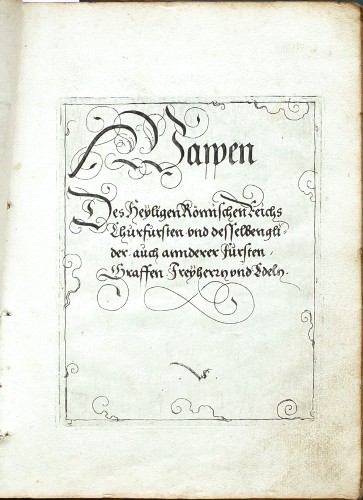 Wappen
Des Heyligen Römischen Reichs
Churfürsten vnd desselben gli-
der auch annderer Fürsten,
Graffen Freyherrn vnd Edeln.